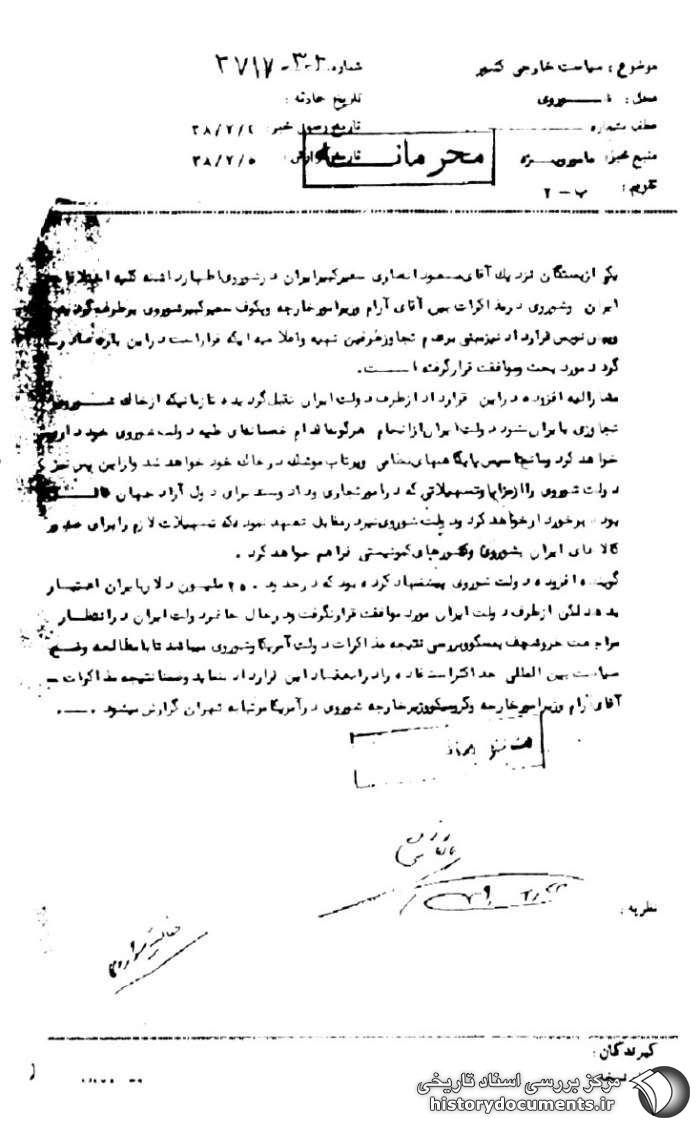 موضوع : سیاست خارجی کشور
شماره
محل : شـــوروی
تاریخ حادثه :
عطف بشماره
تاریخ رسول خبر : ۳۸/۷/۲
منبع خبر : مامورویـــژه
تاریخ گزارش : ۳۸/۷/۵
تقویم : ب - ۲
محرمانـــه
یکی ازبستگان نزدیك آقای مسعودانصاری سفیرکبیرایران درشوروی اظهارداشته کلیه اختلافات
ایران وشوروی درمذاکرات بین آقای آرام وزیرامورخارجه وپکوف سفیرکبیرشوروی برطرف گردیده
وپیش نویس قرارداد نیزمبنی برعدم تجاوزطرفین تهیه واعلامیه ایکه قراراست دراین باره صادر
گردد مورد بحث وموافقت قرارگرفته اســـت .
مشارالیه افزوده دراین قرارداد ازطرف دولت ایران تقبل گردیده تازمانیکه ازخاك شـــوروی
تجاوزی بایران نشود دولت ایران ازانجام هرگونه اقدام خصمانه ای علیه دولت شوروی خودداری
خواهد کرد ومانع تاسیس پایگاههای نظامی وپرتاب موشك درخاك خود خواهد شد وازاین پس نیز
دولت شوروی راازمزایاوتسهیلاتی که درامورتجاری ودادوستد برای دول آزاد جهان قائـــل
بوده برخوردارخواهد کرد ودولت شوروی نیزدرمقابل تعهد نموده که تسهیلات لازم رابرای صدور
کالاهای ایران بشوروی وکشورهای کمونیستی فراهم خواهد کرد .
گوینده افزوده دولت شوروی پیشنهاد کرده بود که درحدود ۲۵۰ ملیون دلاربایران اعتبار
بدهد لکن ازطرف دولت ایران مورد موافقت قرارنگرفت ودرحال حاضردولت ایران درانتظار
مراجعت خروشچف بمسکووبررسی نتیجه مذاکرات دولت آمریکاوشوروی میباشد تابامطالعه وضـــع
سیاست بین المللی حداکثراستفاده رادرانعقاد این قرارداد بنماید وضمنا نتیجه مذاکرات ـ
آقای آرام وزیرامورخارجه وگرومیکووزیرخارجه شوروی درآمریکامرتبا به تهران گزارش میشود .
نظریه :
گیرندگان :
مرکز بررسی اسناد تاریخی
historydocuments.ir